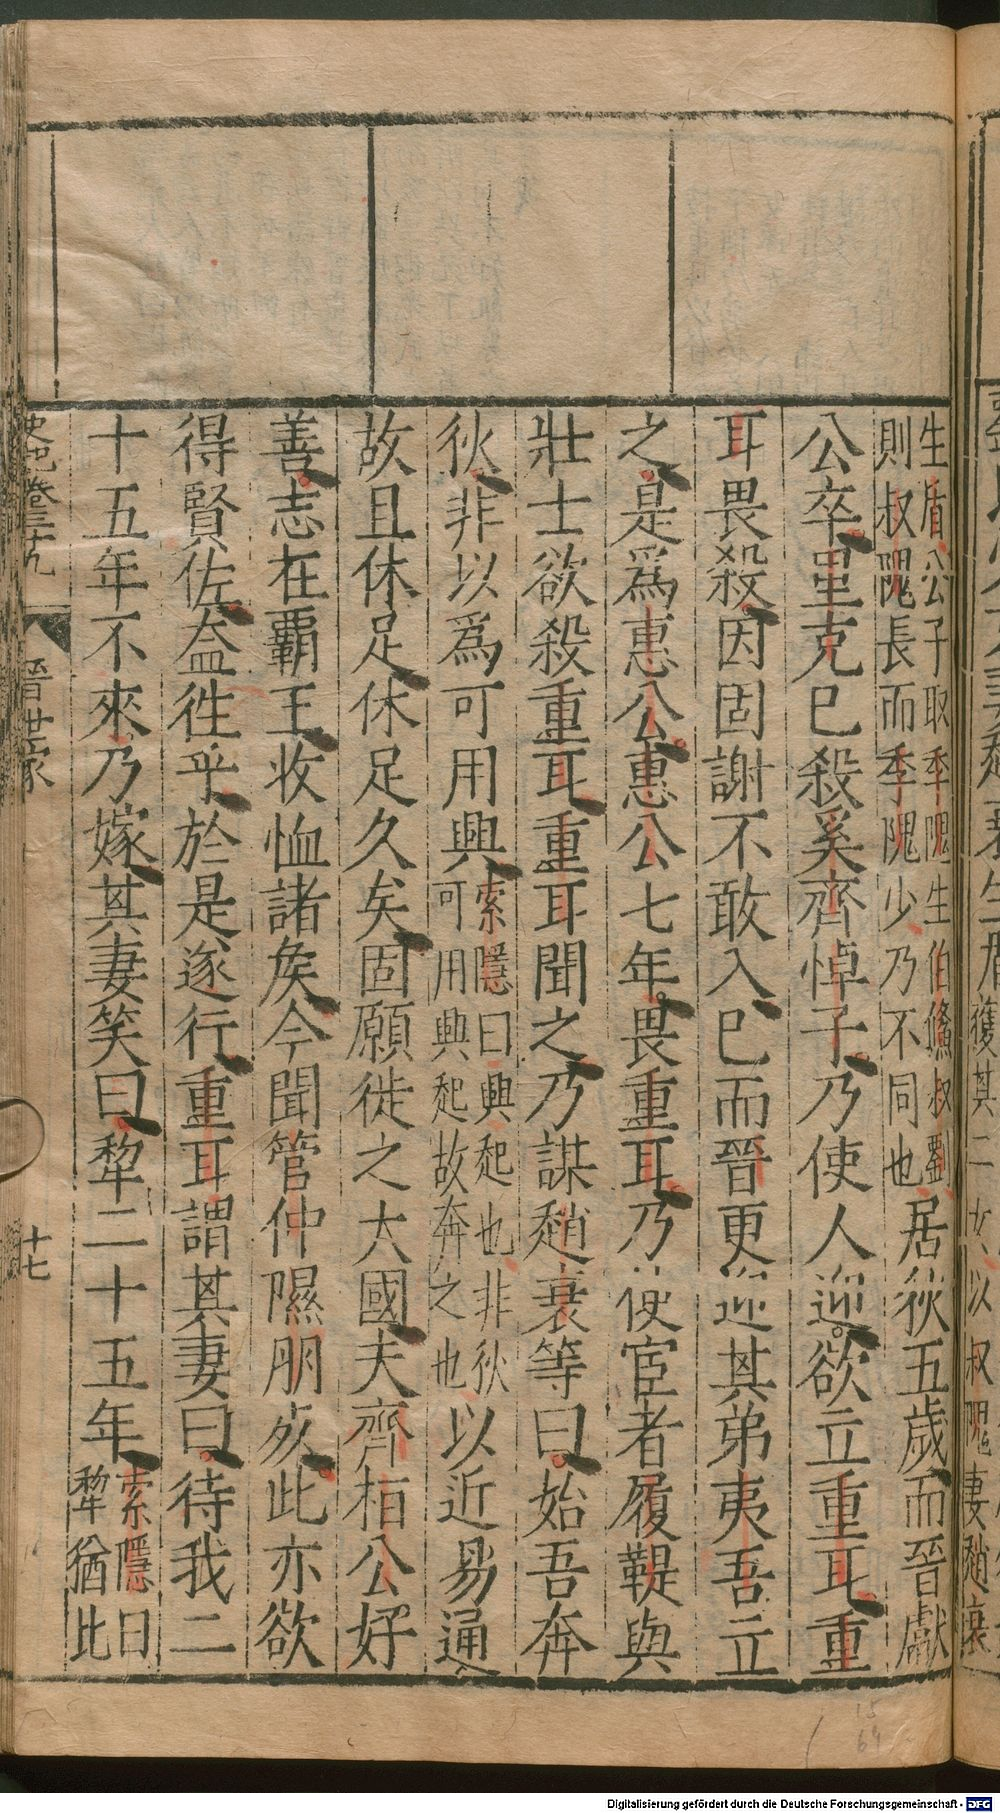 生盾公子取季隗生伯鯈叔劉
則叔隗長而季隗少乃不同也
居狄五歲而晉獻
公卒里克已殺奚齊悼子乃使人迎欲立重耳重
耳畏殺因固謝不敢入已而晉更迎其弟夷吾立
之是爲惠公惠公七年畏重耳乃使宦者履鞮與
壯士欲殺重耳重耳聞之乃謀趙衰等曰始吾奔
狄非以爲可用興
索隱曰興起也非狄
可用興起故奔之也
以近易通
故且休足休足久矣固願徙之大國夫齊桓公好
善志在霸王收恤諸矦今聞管仲隰朋死此亦欲
得賢佐盍徃乎於是遂行重耳謂其妻曰待我二
十五年不來乃嫁其妻笑曰犂二十五年
索隱曰
犂猶比
史記卷三十九
晉世家
十七
獲其二女以叔隗妻趙衰
15
64
Digitalisierung gefördert durch die Deutsche Forschungsgemeinschaft - DFG